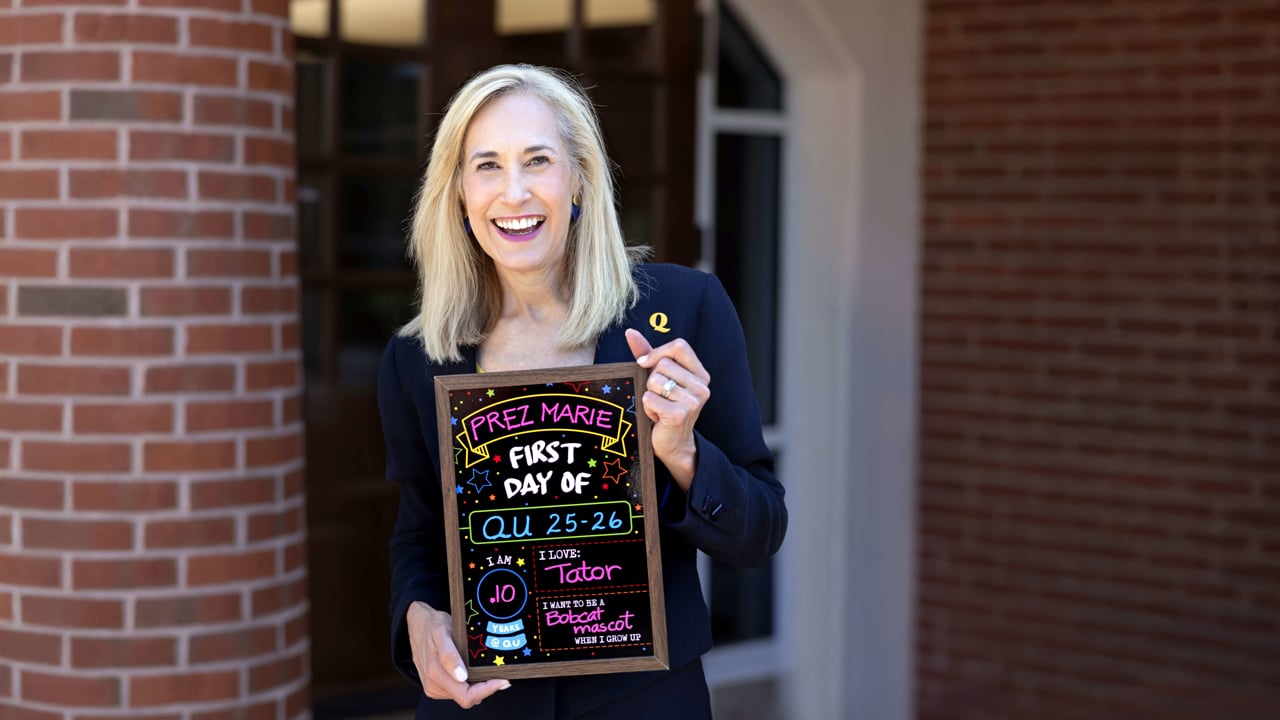 Q
PREZ MARIE
FIRST
DAY OF
QU 25-26
I AM
.10
YEARS
@ QU
I LOVE:
Tator
I WANT TO BE A
Bobcat
mascot
WHEN I GROW UP